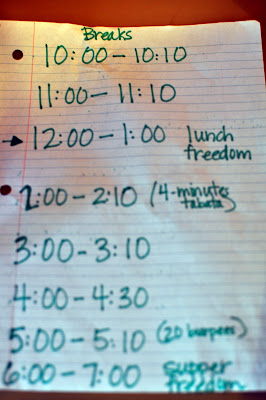 Breaks
10:00 – 10:10
11:00 – 11:10
→ 12:00 – 1:00 lunch freedom
2:00 – 2:10 (4-minutes tabata)
3:00 – 3:10
4:00 – 4:30
5:00 – 5:10 (20 burpees)
6:00 – 7:00 supper freedom